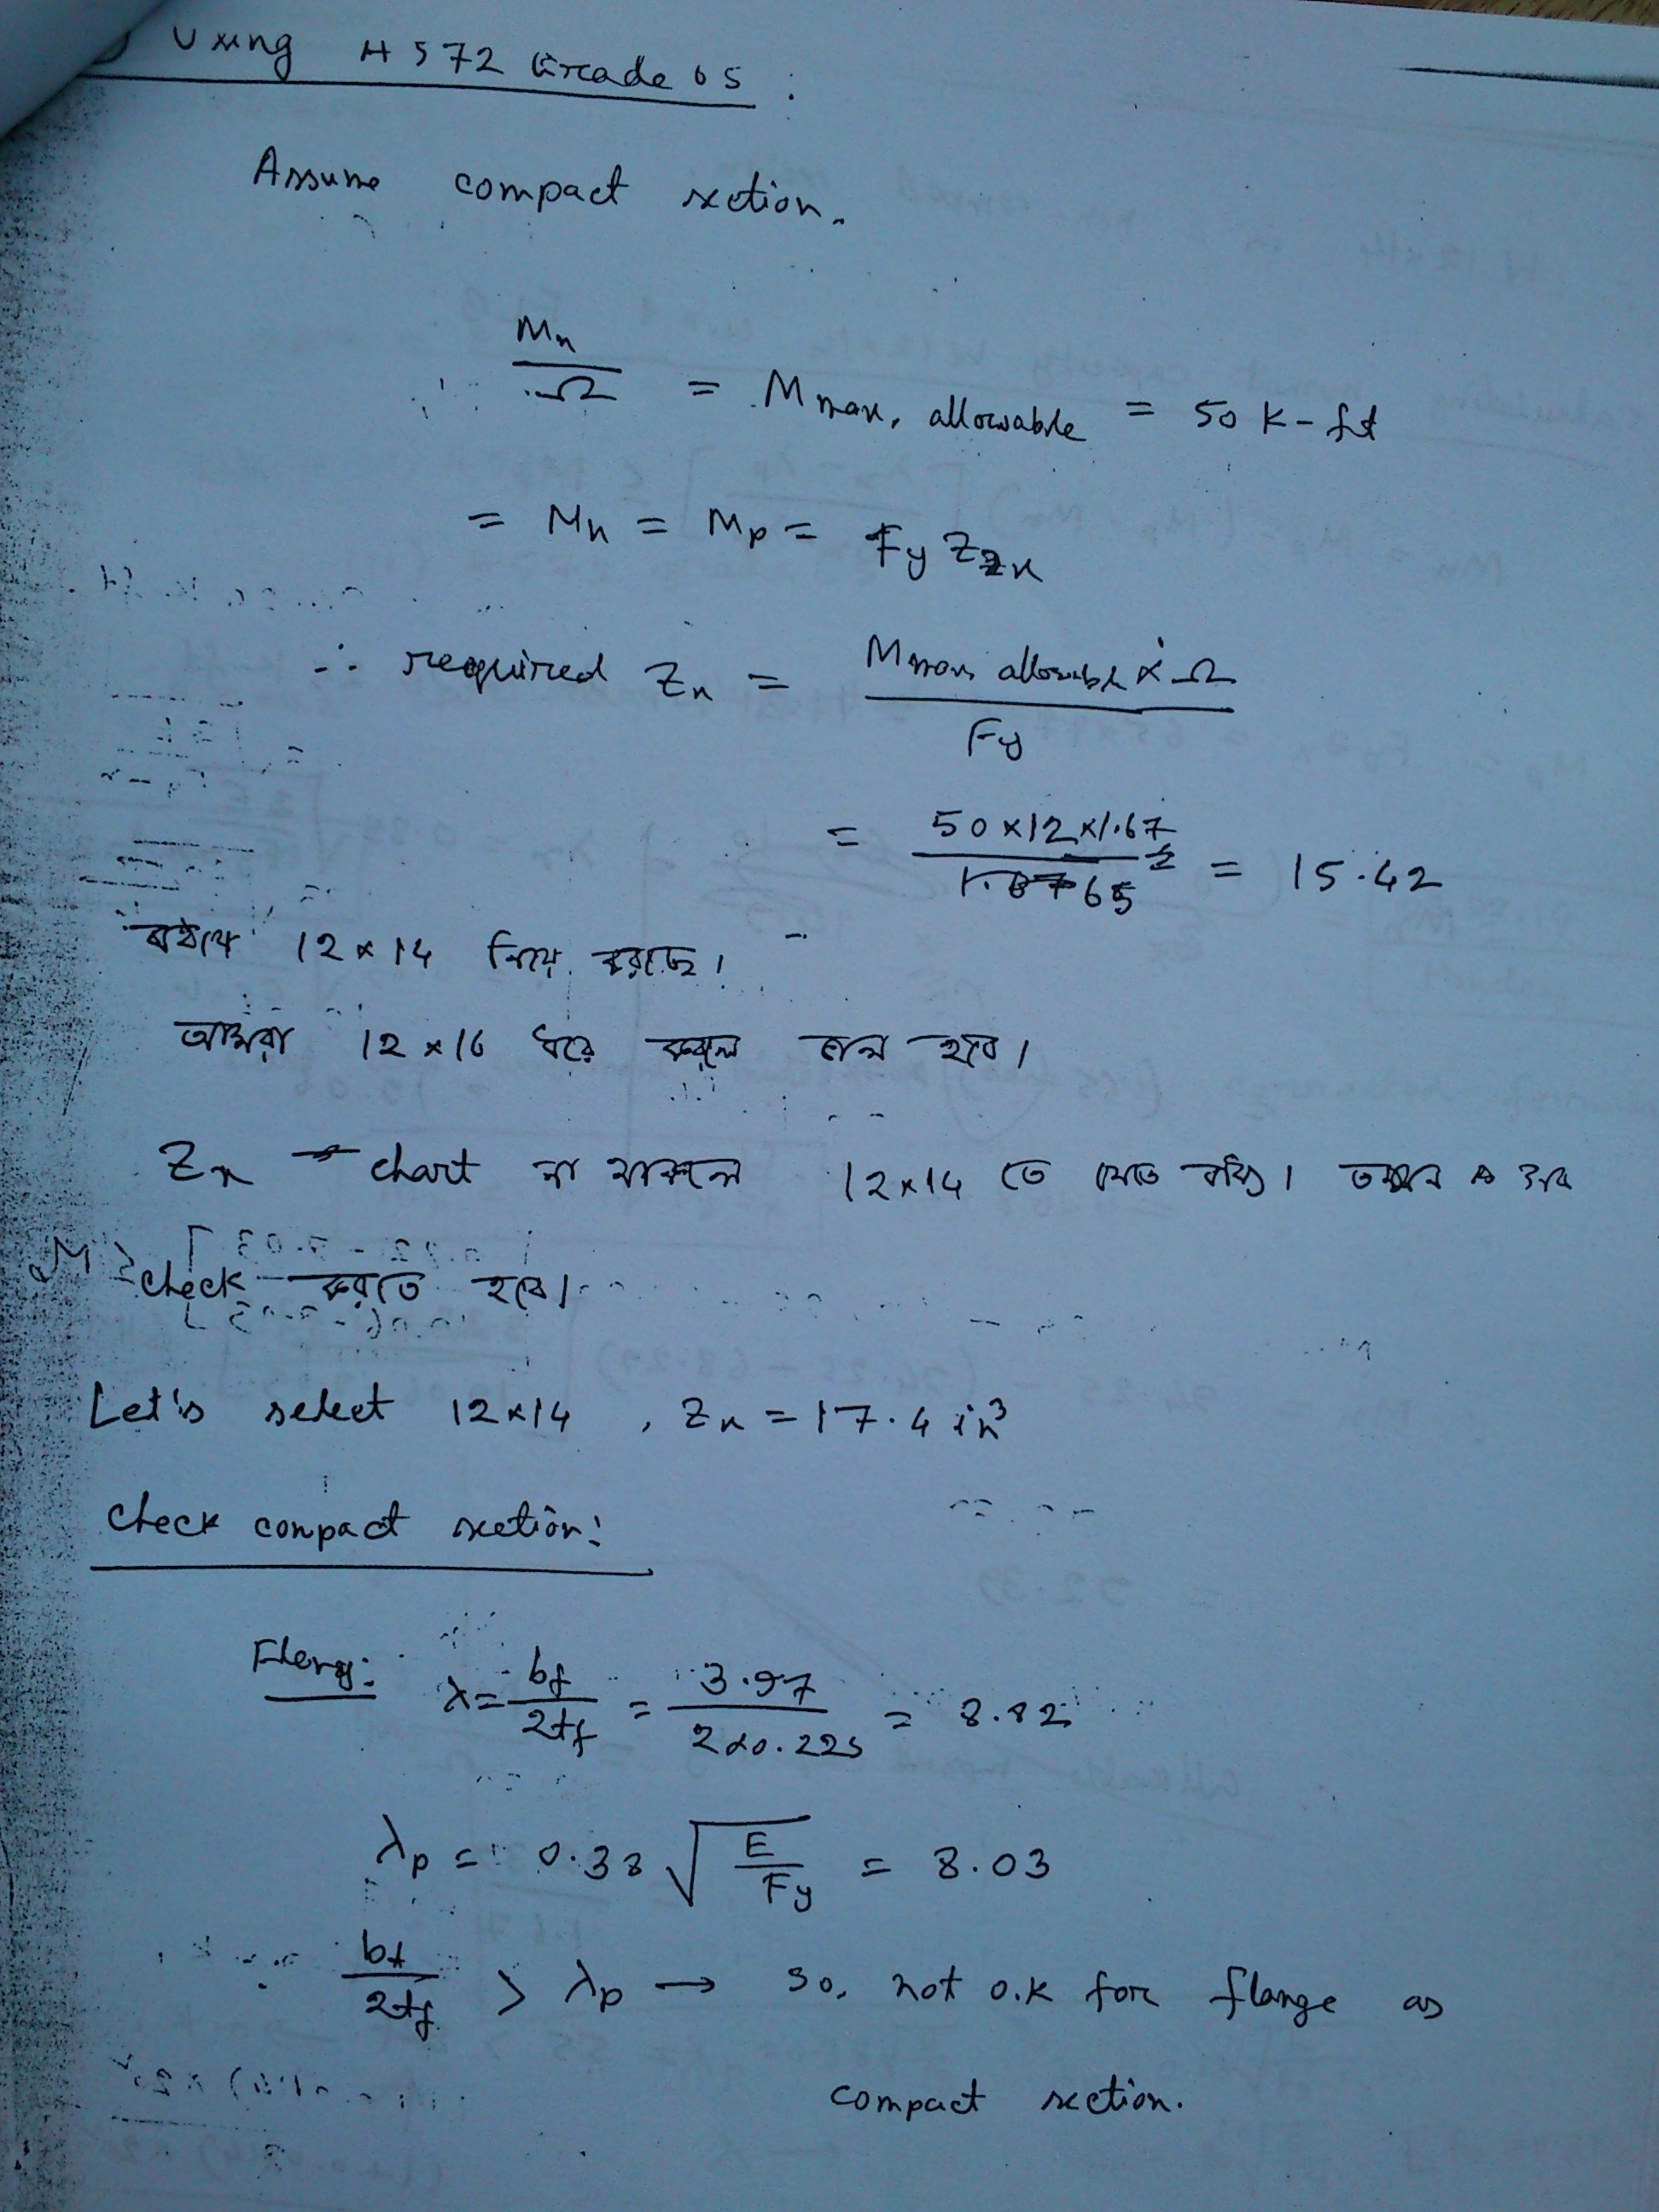 Using A572 Grade 65 :
Assume compact section.
Mn/Ω = Mmax, allowable = 50 K-ft
= Mn = Mp = Fy Zx
∴ required Zx = Mmax allowable × Ω / Fy
= 50×12×1.67 / 65 = 15.42
12×14 নিয়ে করছে।
আমরা 12×16 ধরে করলে ভাল হবে।
Zx chart না থাকলে 12×14 তে যেতে পারি। তখন
check করতে হবে।
Let's select 12×14 , Zx = 17.4 in³
check compact section:
Flang: λ = bf/2tf = 3.97 / 2×0.225 = 8.82
λp = 0.38 √E/Fy = 8.03
bf/2tf > λp → so, not o.k for flange as
compact section.